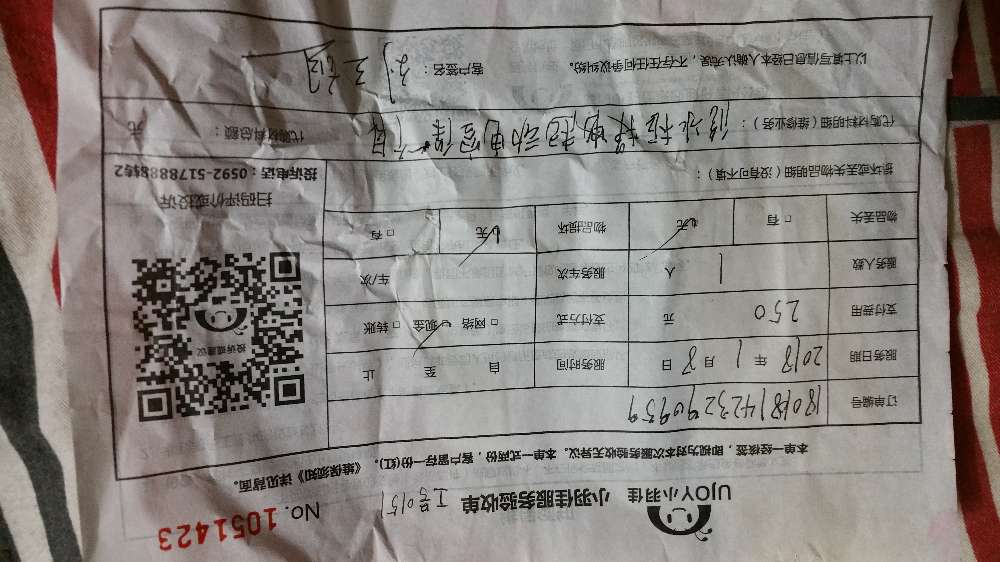 UJOY小羽佳 小羽佳服务验收单 工号0151 No. 1051423
本单一经核签,即视为对本次服务验收无异议。本单一式两份,客户留存一份(红)。《维保须知》详见背面。
订单编号 180181423290959
服务日期 2018 年 1 月 8 日 服务时间 自 至 止
支付费用 250 元 支付方式 □ 网络 现金 □ 转账
服务人数 1 人 服务车次 车/次
物品丢失 □ 有 无 物品损坏 无 □ 有
投诉或建议
扫码评价或投诉
投诉电话:0592-5178888转2
损坏或丢失物品明细(没有可不填):
代购材料明细(维修业务): 动电容 代购材料总额: 元
以上填写信息已经本人确认完晟,不存在任何争议纠纷。 客户签名: